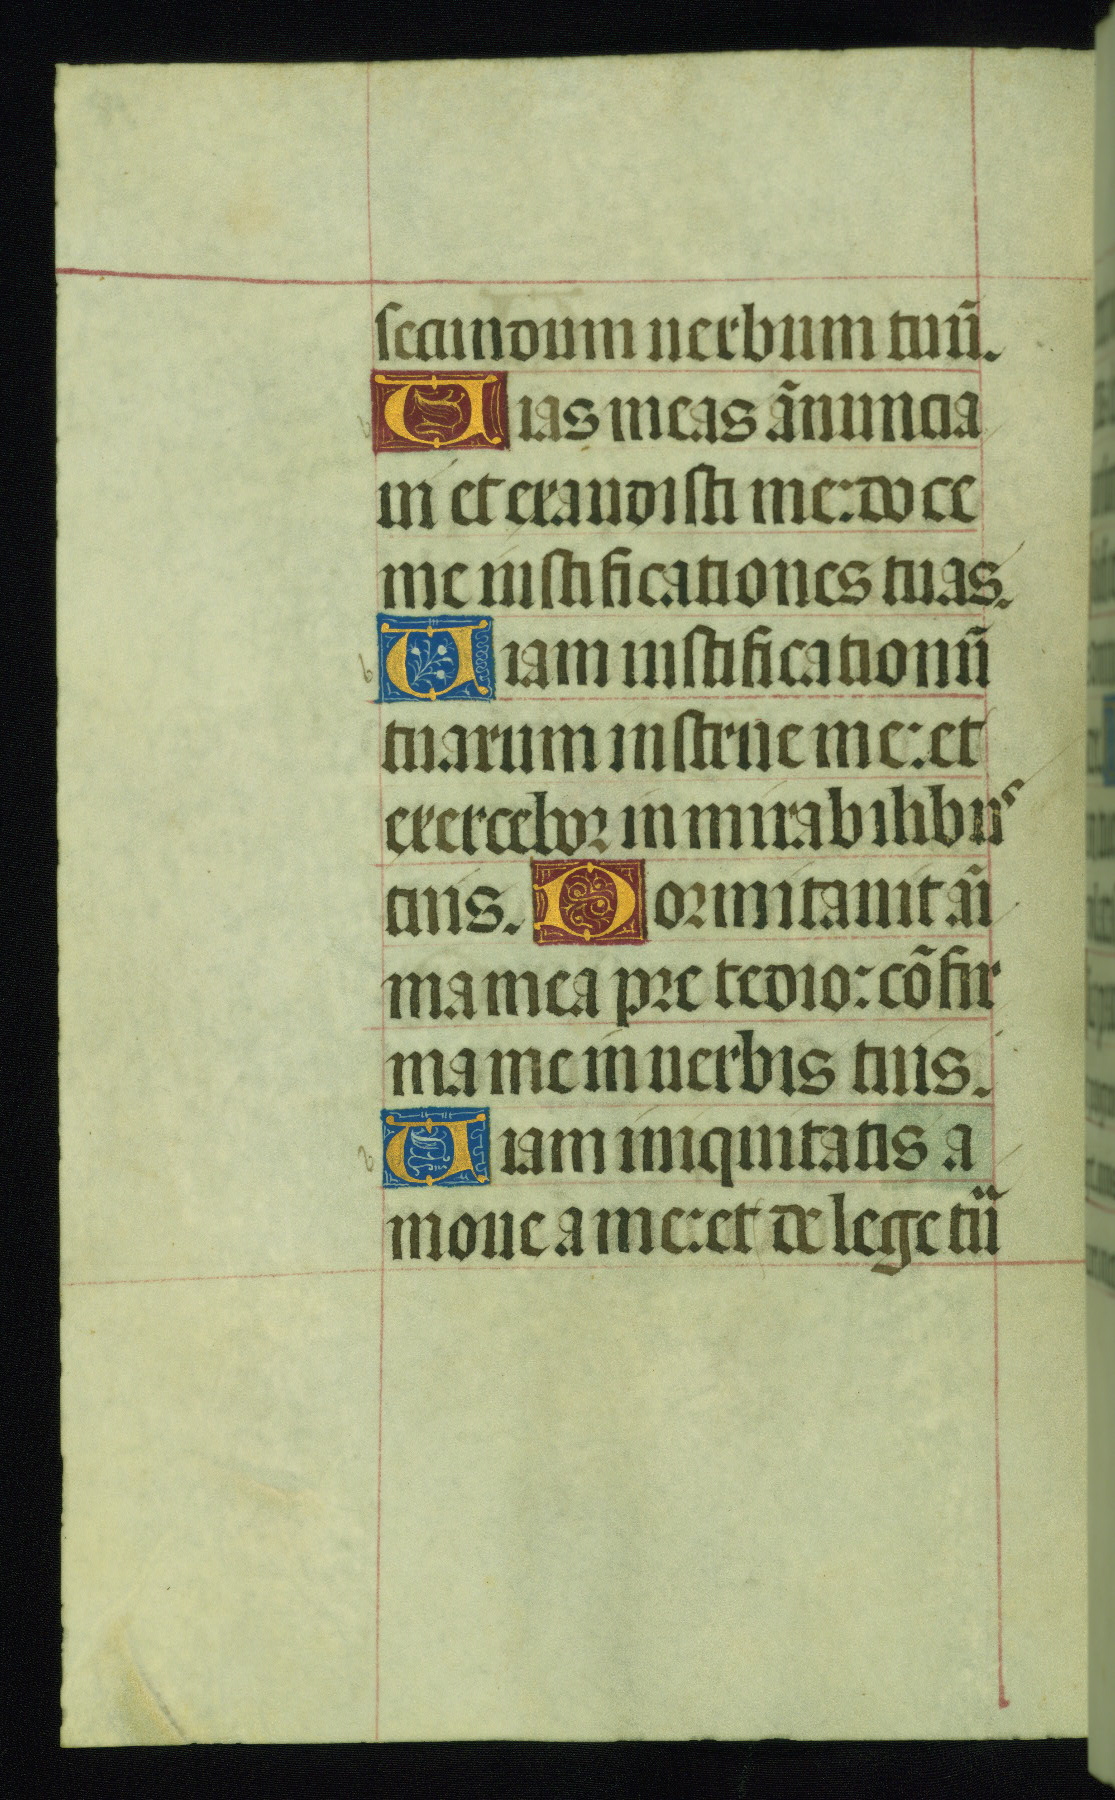 secundum uerbum tuũ.
Uias meas ãnuncia
ui et exaudisti me: doce
me iustificationes tuas.
Uiam iustificationũ
tuarum instrue me: et
exercebor in mirabilibus
tuis. Dormitauit aĩ
ma mea pre tedio: cõfir
ma me in uerbis tuis.
Uiam iniquitatis a
moue a me: et de lege tũ